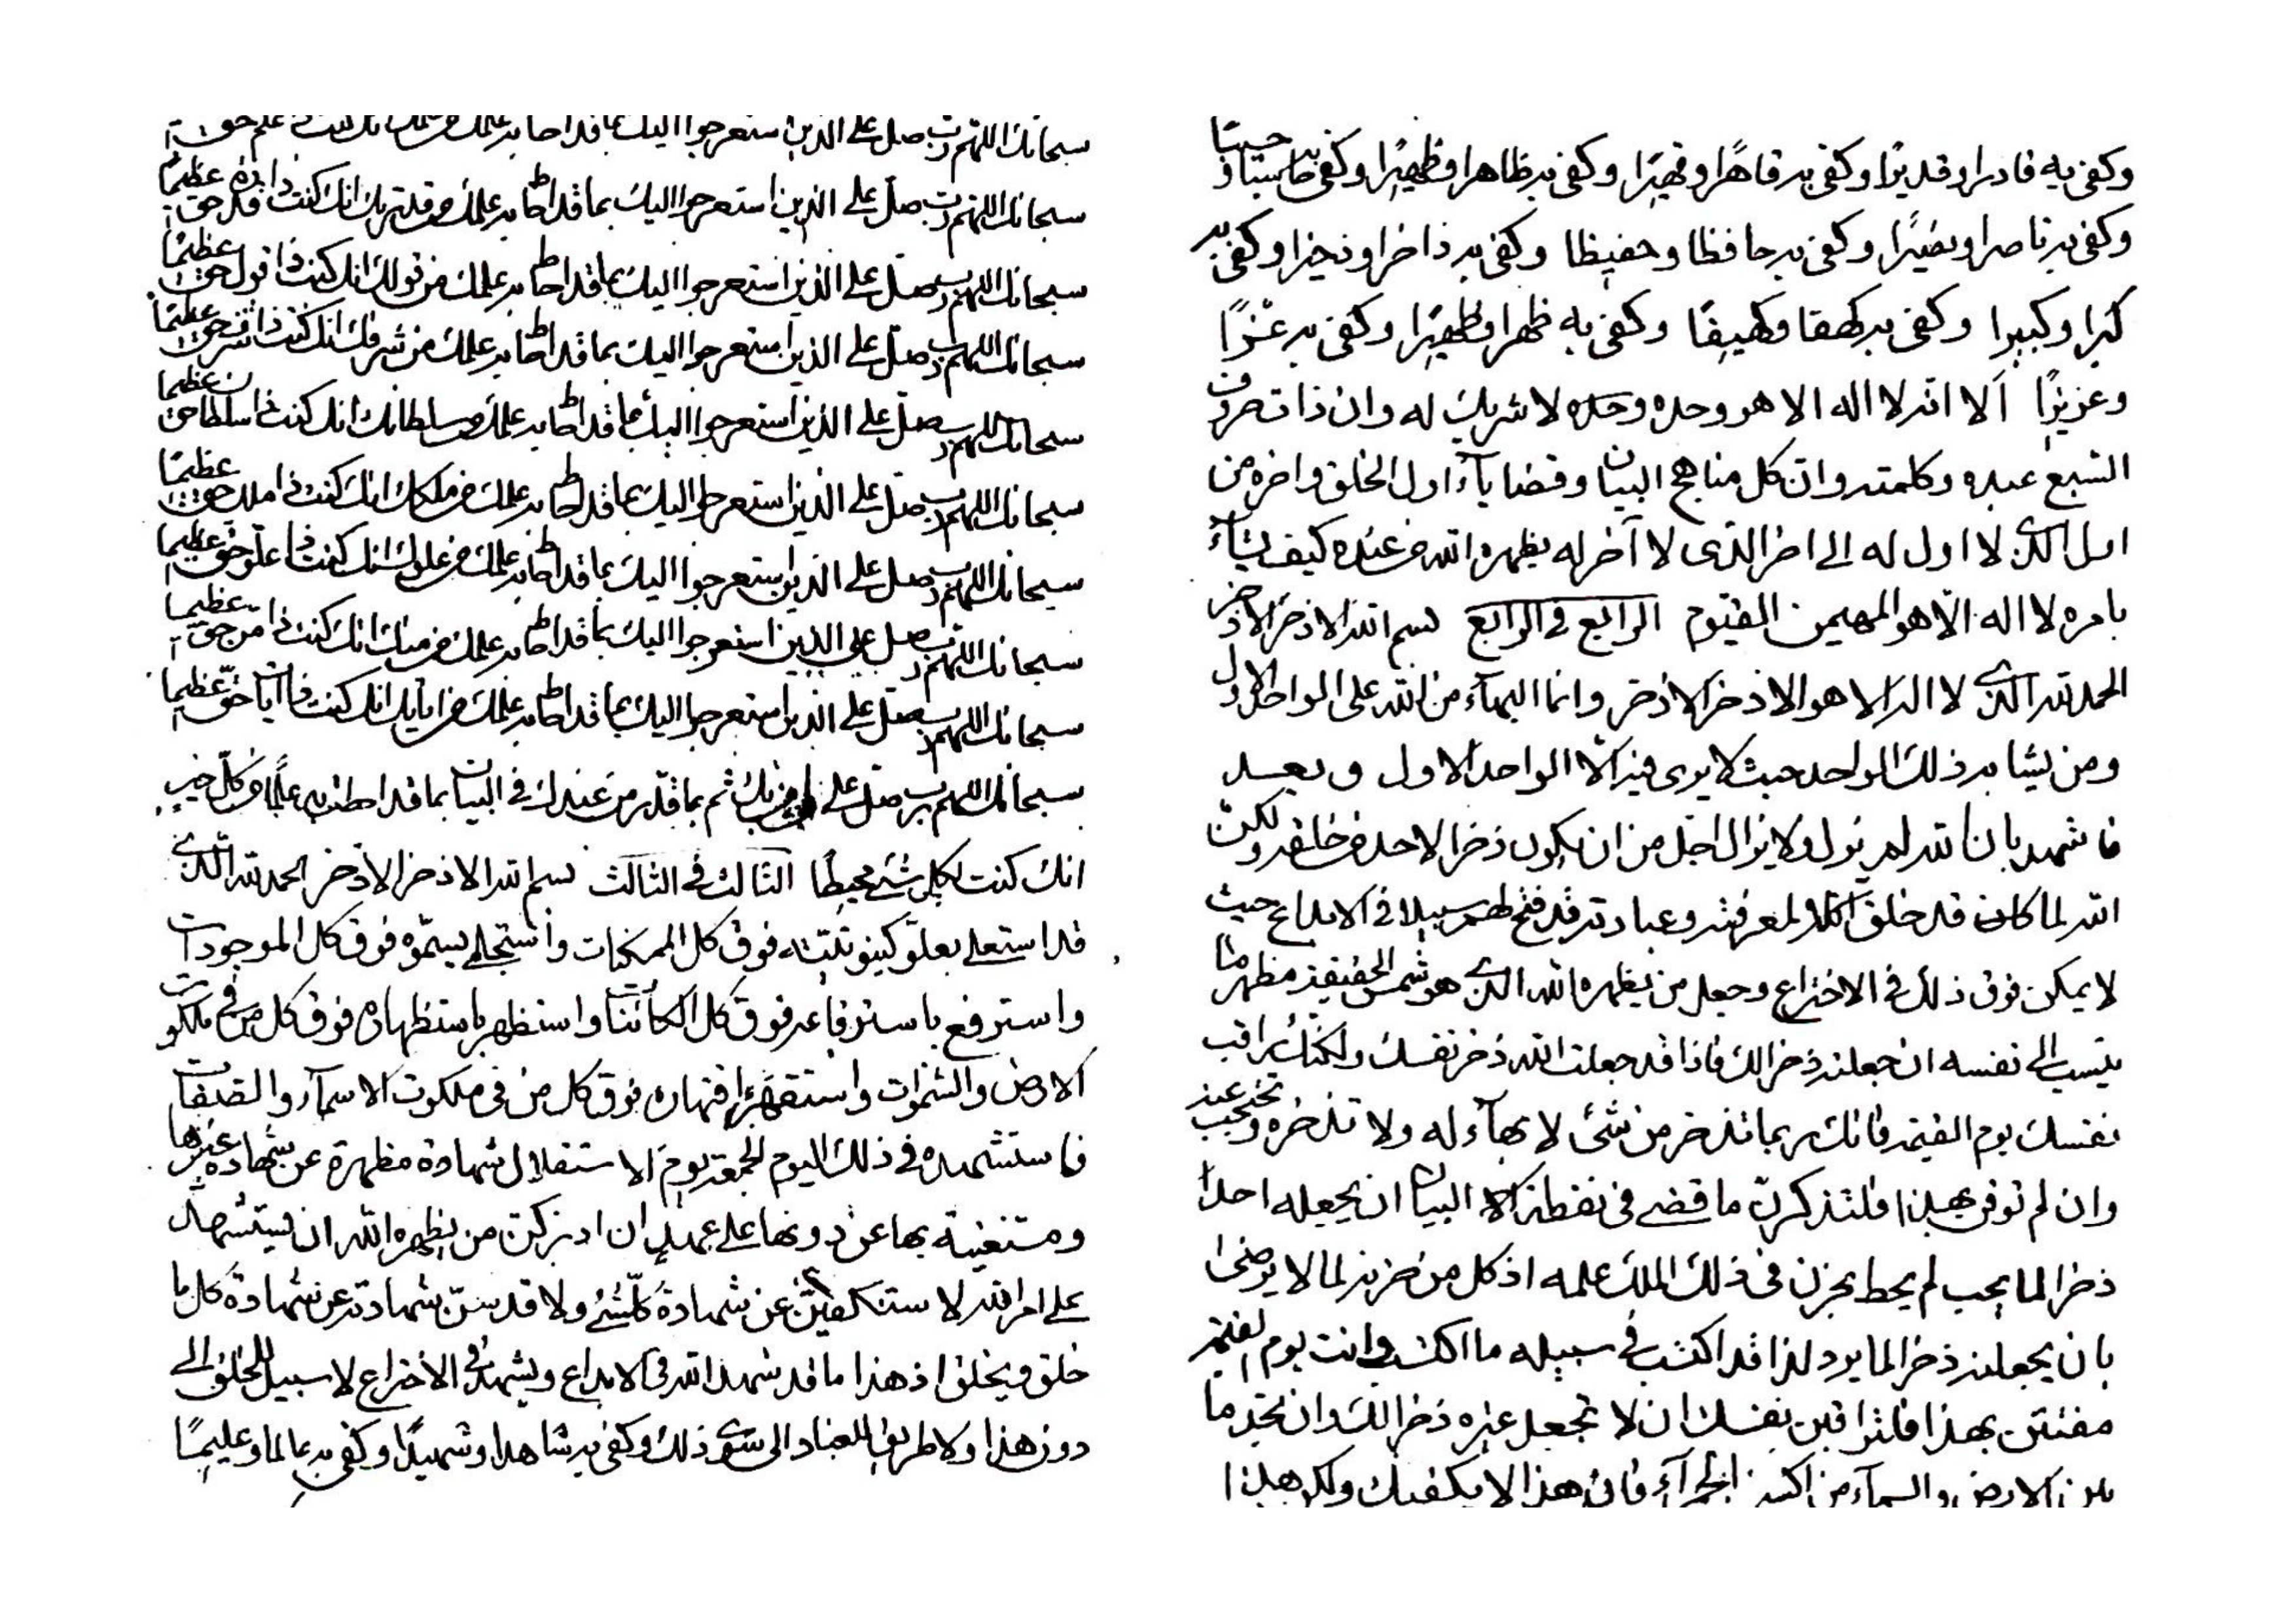 سبحانك اللهم رب صل على الذين استعرجوا اليك بما قد احاط به علمك من علمك انك كنت ذا علم حق
سبحانك اللهم رب صل على الذين استعرجوا اليك بما قد احاط به علمك من قدرتك انك كنت ذا قدرة حق عظيما
سبحانك اللهم رب صل على الذين استعرجوا اليك بما قد احاط به علمك من قولك انك كنت ذا قول حق عظيما
سبحانك اللهم رب صل على الذين استعرجوا اليك بما قد احاط به علمك من شرفك انك كنت ذا شرف حق عظيما
سبحانك اللهم رب صل على الذين استعرجوا اليك بما قد احاط به علمك من سلطانك انك كنت ذا سلطان حق عظيما
سبحانك اللهم رب صل على الذين استعرجوا اليك بما قد احاط به علمك من ملكك انك كنت ذا ملك حق عظيما
سبحانك اللهم رب صل على الذين استعرجوا اليك بما قد احاط به علمك من علوك انك كنت ذا علو حق عظيما
سبحانك اللهم رب صل على الذين استعرجوا اليك بما قد احاط به علمك من منك انك كنت ذا من حق عظيما
سبحانك اللهم رب صل على الذين استعرجوا اليك بما قد احاط به علمك من اياتك انك كنت ذا ايات حق عظيما
سبحانك اللهم رب صل على بك ثم بما قدر من عندك في البيان بما قد احطت به علما من كل خير
انك كنت بكل شئ محيطا الثالث في الثالث بسم الله الاذخر الاذخر الحمد لله الذى
قد استعلى بعلو كينونيته فوق كل الممكنات واستجلى بسموه فوق كل الموجودات
واسترفع باسترفاعه فوق كل الكائنات واستظهر باستظهاره فوق كل من في ملكوت
الارض والسموات واستقهر باقتهاره فوق كل من في ملكوت الاسمآء والصفات
فاستشهده في ذلك اليوم الجمعة يوم الاستقلال شهادة مظهرة عن شهادة غيرها
ومستغنية بها عن دونها على عهد ان ادركن من يظهره الله ان يستشهد
على امر الله لاستكفين عن شهادة كلشئ ولا قدسن بشهادته عن شهادة كل ما
خلق ويخلق اذ هذا ما قد شهد الله في الابداع ويشهد في الاختراع لا سبيل للخلق الى
دون هذا ولا طريق للعباد الى سوى ذلك وكفى به شاهدا وشهيدا وكفى به عالما وعليما
وكفى به قادرا وقديرا وكفى به قاهرا وقهيرا وكفى به ظاهرا وظهيرا وكفى به حاسبا وحسيبا
وكفى به ناصرا ونصيرا وكفى به حافظا وحفيظا وكفى به ذاخرا وذخيرا وكفى به
كبرا وكبيرا وكفى به كهفا وكهيفا وكفى به ظهرا وظهيرا وكفى به عززا
وعزيزا ألا انه لا اله الا هو وحده وحده لا شريك له وان ذات حروف
السبع عبده وكلمته وان كل مناهج البيان وقضايآء اول الخلق واخره من
اول الذى لا اول له الى اخر الذى لا آخر له يظهره الله من عنده كيف يشآء
بامره لا اله الا هو المهيمن القيوم الرابع في الرابع بسم الله الاذخر الاذخر
الحمد لله الذى لا اله الا هو الاذخر الاذخر وانما البهآء من الله على الواحد الاول
ومن يشابه ذلك الواحد حيث لا يرى فيه الا الواحد الاول وبعد
فاشهد بان الله لم يزل ولا يزال اجل من ان يكون ذخرا لاحد من خلقه ولكن
الله لما كان قد خلق الكل لمعرفته وعبادته قد فتح لهم سبيلا في الابداع حيث
لا يمكن فوق ذلك في الاختراع وجعل من يظهره الله الذى هو شمس الحقيقة مظهر ما
ينسب الى نفسه ان جعلته ذخرا لك فاذا قد جعلت الله ذخر نفسك ولكنك راقب
نفسك يوم القيمة فانك ربما تذخر من شئ لا بهآء له ولا تذخره وتحتجب عنه
وان لم توقن بهذا فلتذكرن ما قضى في نقطة البيان ان يجعله احدا
ذخرا لما يحب لم يحط بحزن في ذلك الملك علمه اذ كل من حزنه لما لا يرضى
بان يجعلنه ذخرا لما يرد لذا قد اكتسب في سبيله ما اكتسب وانت يوم القيمة
مفتتن بهذا فلتراقبن نفسك ان لا تجعل غيره ذخرا لك وان تجد ما
بين الارض والسمآء من اكسير الحمرآء فان هذا لا يكفيك ولكن هذا